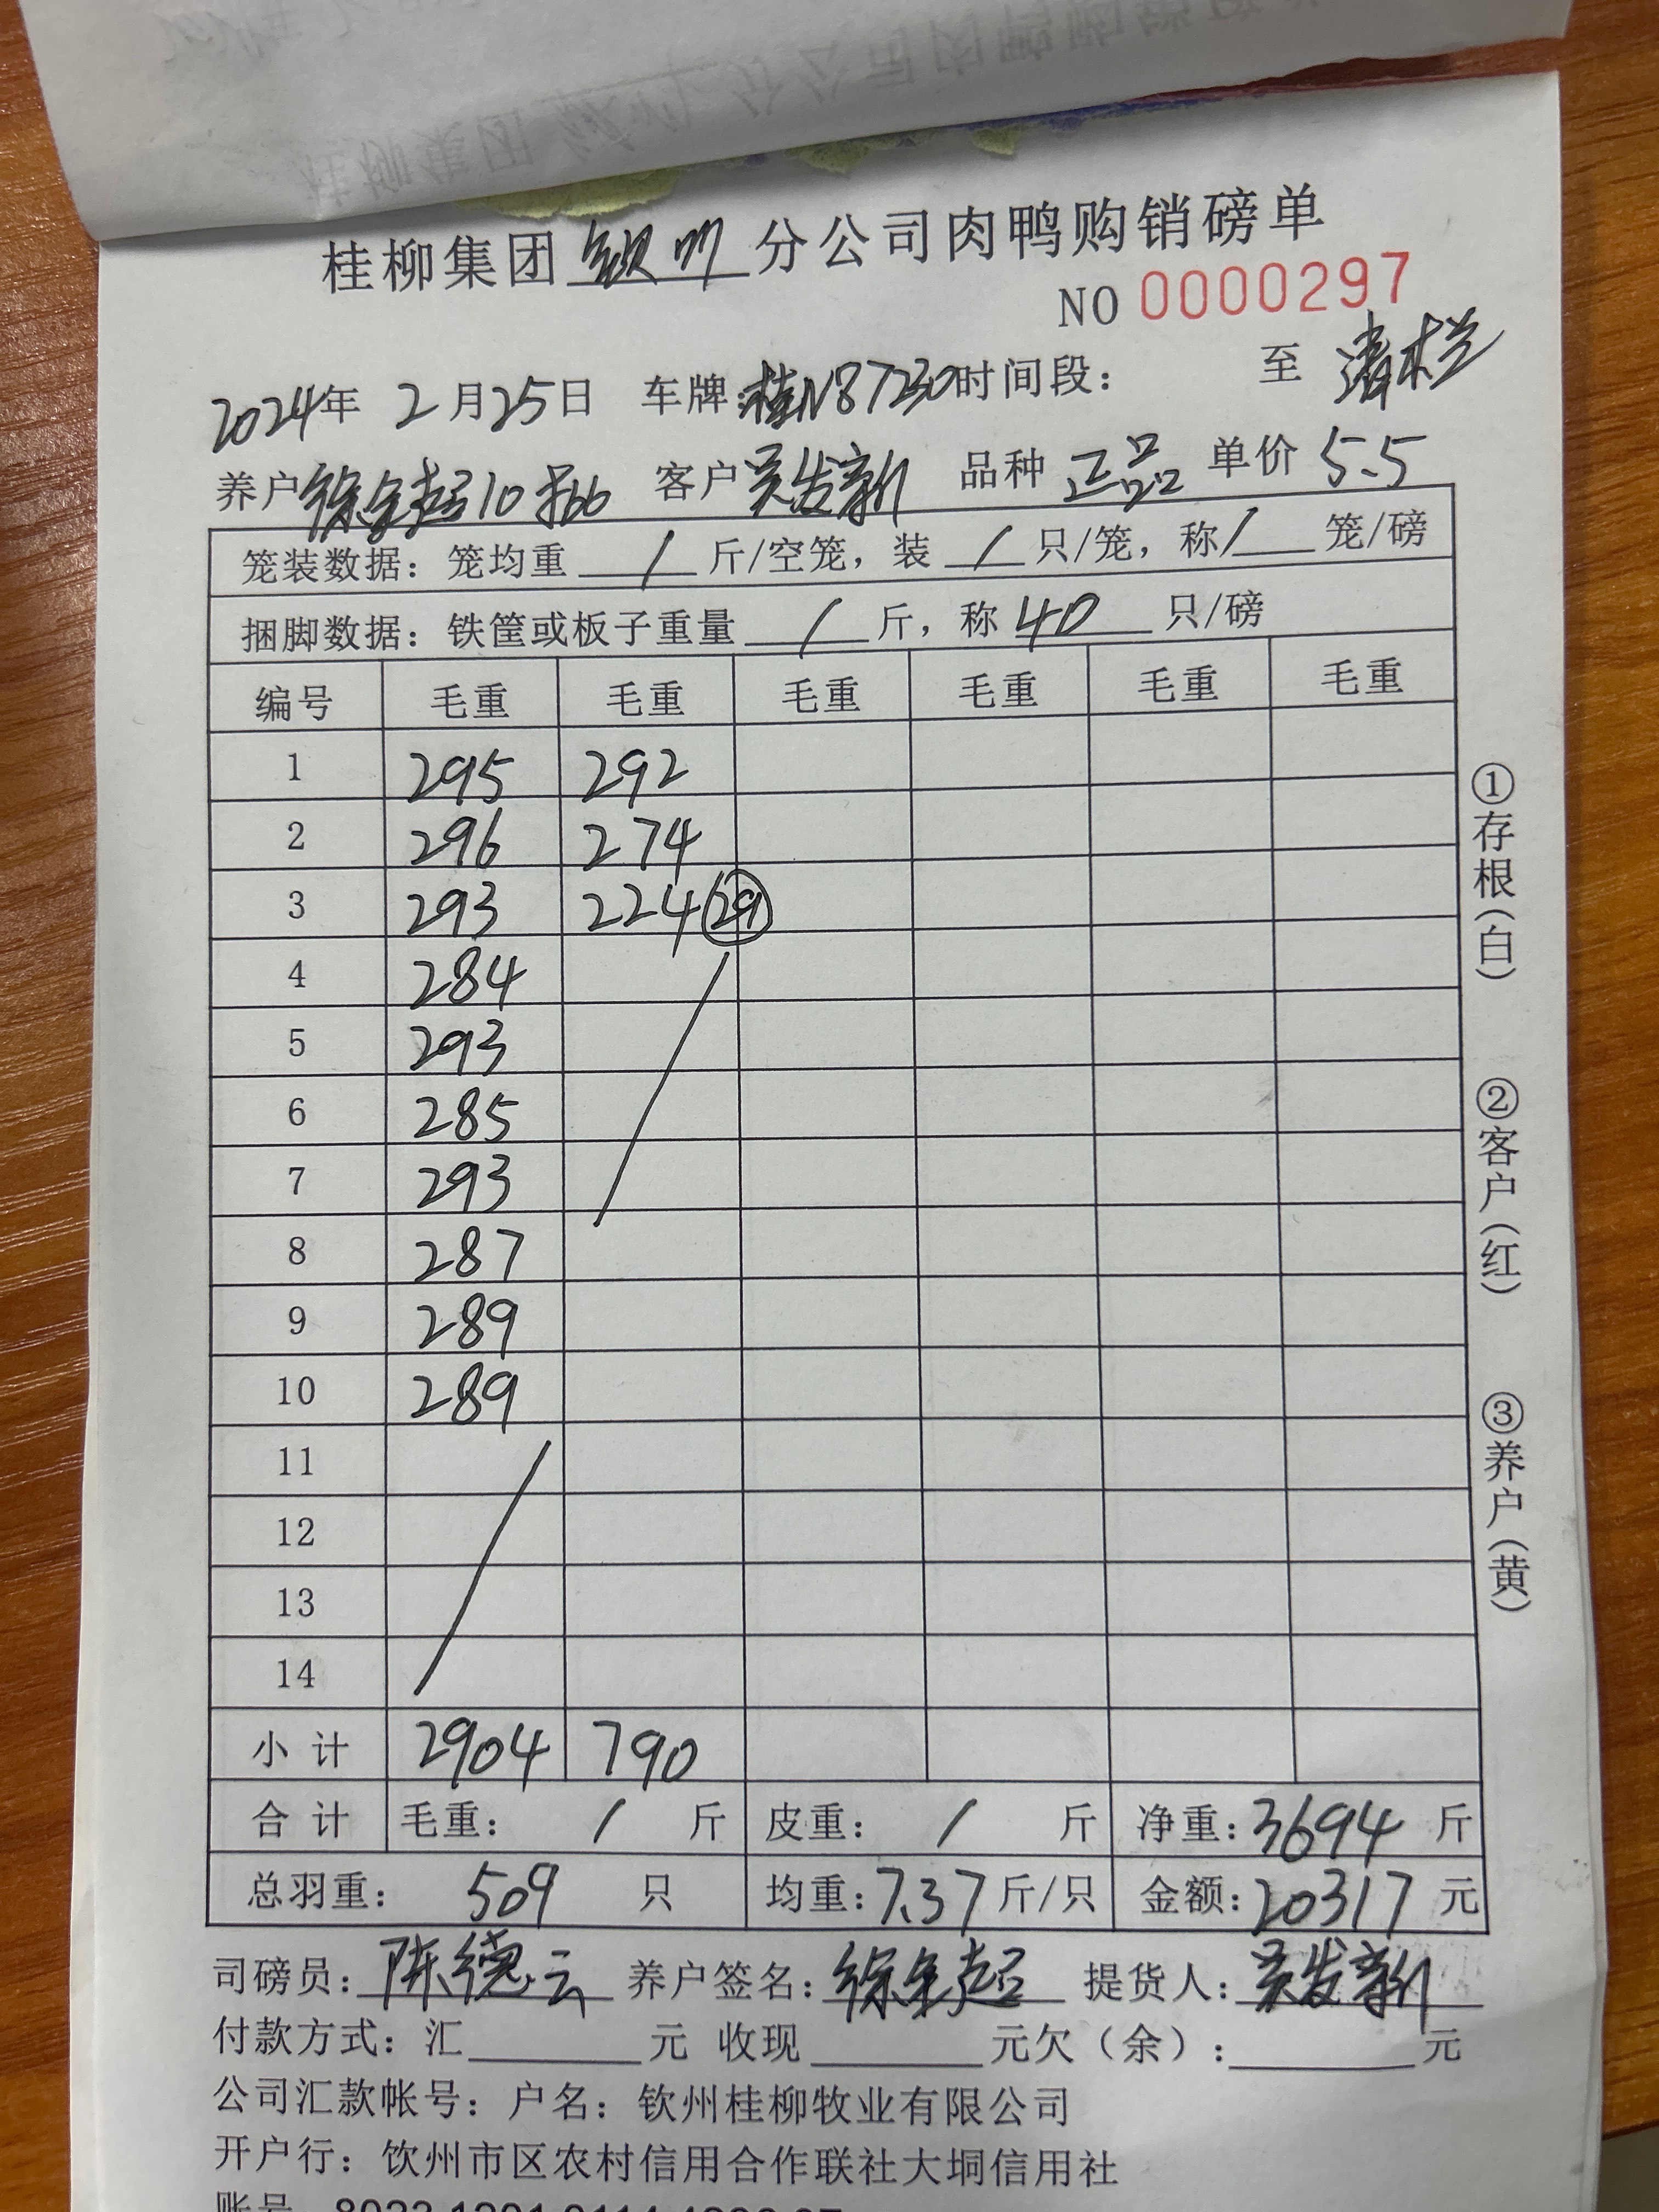 桂柳集团 钦州 分公司肉鸭购销磅单
NO 0000297
2024年 2月25日 车牌:桂N87230时间段: 至 清栏
养户 徐全超10 客户 吴发新 品种 正品 单价 5.5
笼装数据:笼均重 / 斤/空笼,装 / 只/笼,称 / 笼/磅
捆脚数据:铁筐或板子重量 / 斤,称 40 只/磅
编号 毛重 毛重 毛重 毛重 毛重 毛重
1 295 292
2 296 274
3 293 224 29
4 284
5 293
6 285
7 293
8 287
9 289
10 289
11
12
13
14
小计 2904 790
合计 毛重: / 斤 皮重: / 斤 净重:3694 斤
总羽重: 509 只 均重:7.37 斤/只 金额:20317 元
司磅员:陈德云 养户签名:徐全超 提货人:吴发新
付款方式:汇 元 收现 元欠(余): 元
公司汇款帐号:户名:钦州桂柳牧业有限公司
开户行:钦州市区农村信用合作联社大垌信用社
账号
①存根(白)
②客户(红)
③养户(黄)